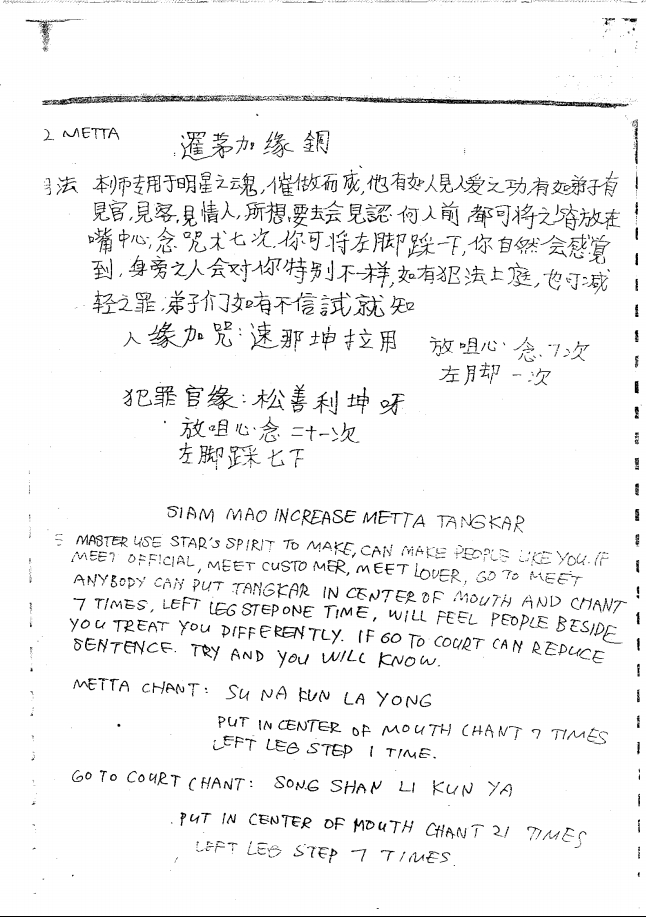 2 METTA
暹茅加缘銅
法 本师专用于明星之魂,催做而成,他有如人見人爱之功,有如弟子有
見官,見客,見情人,所想要去会見認何人前 都可将之皆放在
嘴中心,念咒术七次.你可将左脚踩一下,你自然会感覚
到,身旁之人会对你特别不一样,如有犯法上庭,也可减
轻之罪,弟子们如有不信試就知
人缘加咒:速那坤拉用 放咀心念7次
左脚一次
犯罪官缘:松善利坤呀
放咀心念二十一次
左脚踩七下
SIAM MAO INCREASE METTA TANGKAR
MASTER USE STAR'S SPIRIT TO MAKE, CAN MAKE PEOPLE LIKE YOU. IF
MEET OFFICIAL, MEET CUSTOMER, MEET LOVER, GO TO MEET
ANYBODY CAN PUT TANGKAR IN CENTER OF MOUTH AND CHANT
7 TIMES, LEFT LEG STEP ONE TIME, WILL FEEL PEOPLE BESIDE
YOU TREAT YOU DIFFERENTLY. IF GO TO COURT CAN REDUCE
SENTENCE. TRY AND YOU WILL KNOW.
METTA CHANT: SU NA KUN LA YONG
PUT IN CENTER OF MOUTH CHANT 7 TIMES
LEFT LEG STEP 1 TIME.
GO TO COURT CHANT: SONG SHAN LI KUN YA
PUT IN CENTER OF MOUTH CHANT 21 TIMES
LEFT LEG STEP 7 TIMES.